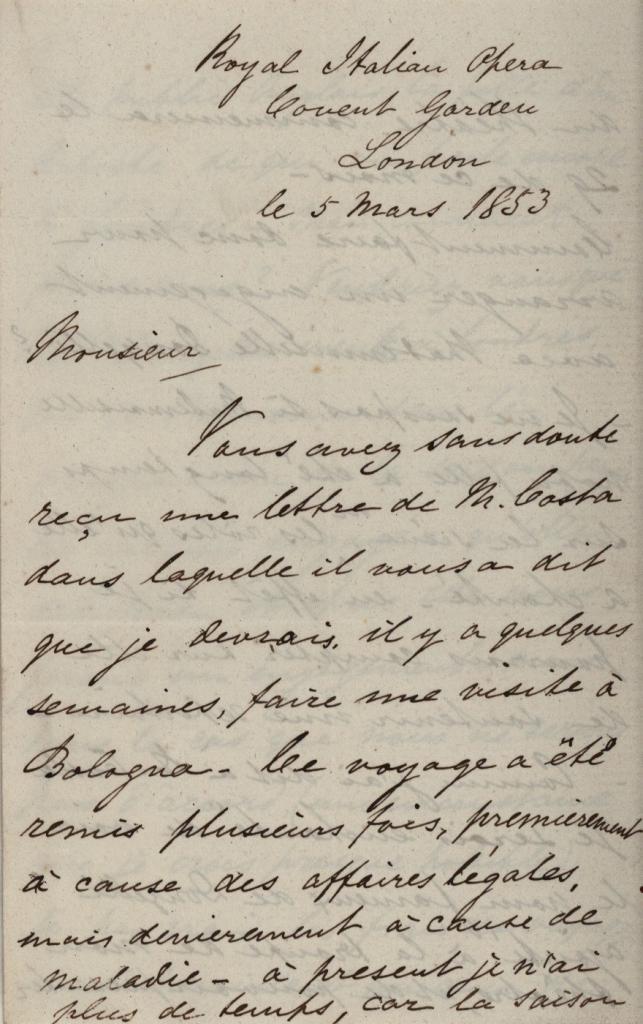 Royal Italian Opera
Covent Garden
London
le 5 Mars 1853
Monsieur
Vous avez sans doute
reçu une lettre de M. Costa
dans laquelle il vous a dit
que je devrais, il y a quelques
semaines, faire une visite à
Bologna - Ce voyage a été
remis plusieurs fois, premièrement
à cause des affaires légales,
mais denierement à cause de
maladie - à présent je n'ai
plus de temps, car la saison